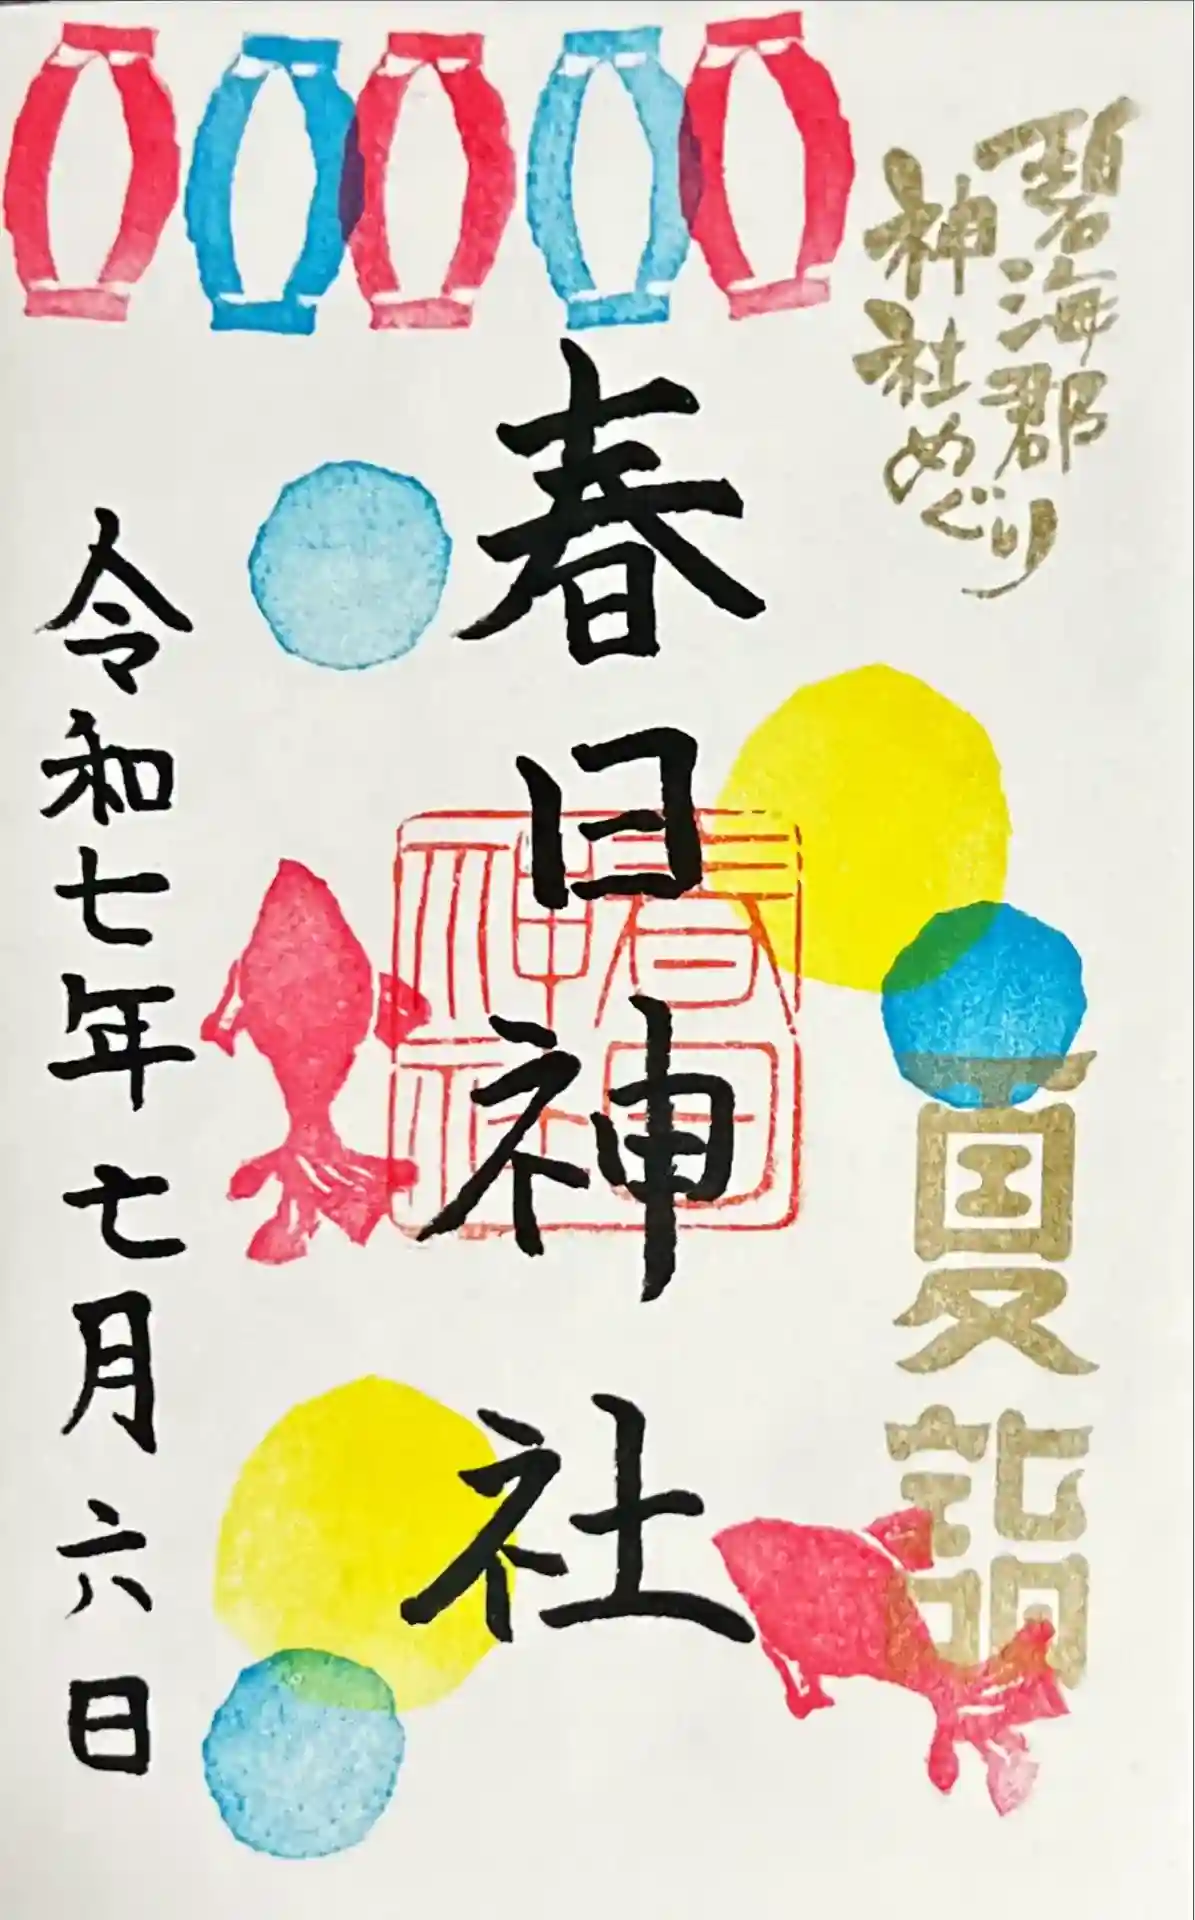 碧海郡
神社めぐり
夏詣
春日神社
春日
神社
令和七年七月六日